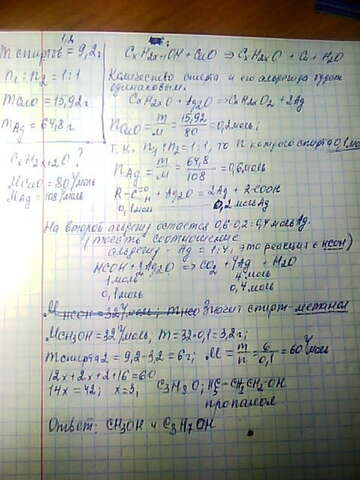 m спиртов = 9,2г
n₁ : n₂ = 1:1
m CuO = 15,92г
m Ag = 64,8г
CxH2x+2O ?
M CuO = 80 г/моль
M Ag = 108 г/моль
CxH2x+1OH + CuO => CxH2xO + Cu + H2O
Количество спирта и его альдегида будет
одинаковым.
CxH2xO + Ag2O => CxH2xO2 + 2Ag
n CuO = m/M = 15,92/80 = 0,2 моль;
т.к. n₁ : n₂ = 1:1, то n каждого спирта 0,1 моль
n Ag = m/M = 64,8/108 = 0,6 моль
+ Ag2O = 2Ag + R-COOH
0,1 моль 0,2 моль Ag
На второй альдегид остается 0,6-0,2=0,4 моль Ag
(то есть соотношение
альдегид - Ag = 1:4, это реакция с HCOH)
HCOH + Ag2O => CO2 + 4Ag + H2O
1 моль 4 моль
0,1 моль 0,4 моль
Значит спирт - метанол
M CH3OH = 32 г/моль, m = 32·0,1 = 3,2г;
m спирта 2 = 9,2-3,2 = 6г; M = m/n = 6/0,1 = 60 г/моль
12x+2x+2+16=60
14x = 42; x=3, C3H8O; H3C-CH2CH2-OH
пропанол
Ответ: CH3OH и C3H7OH